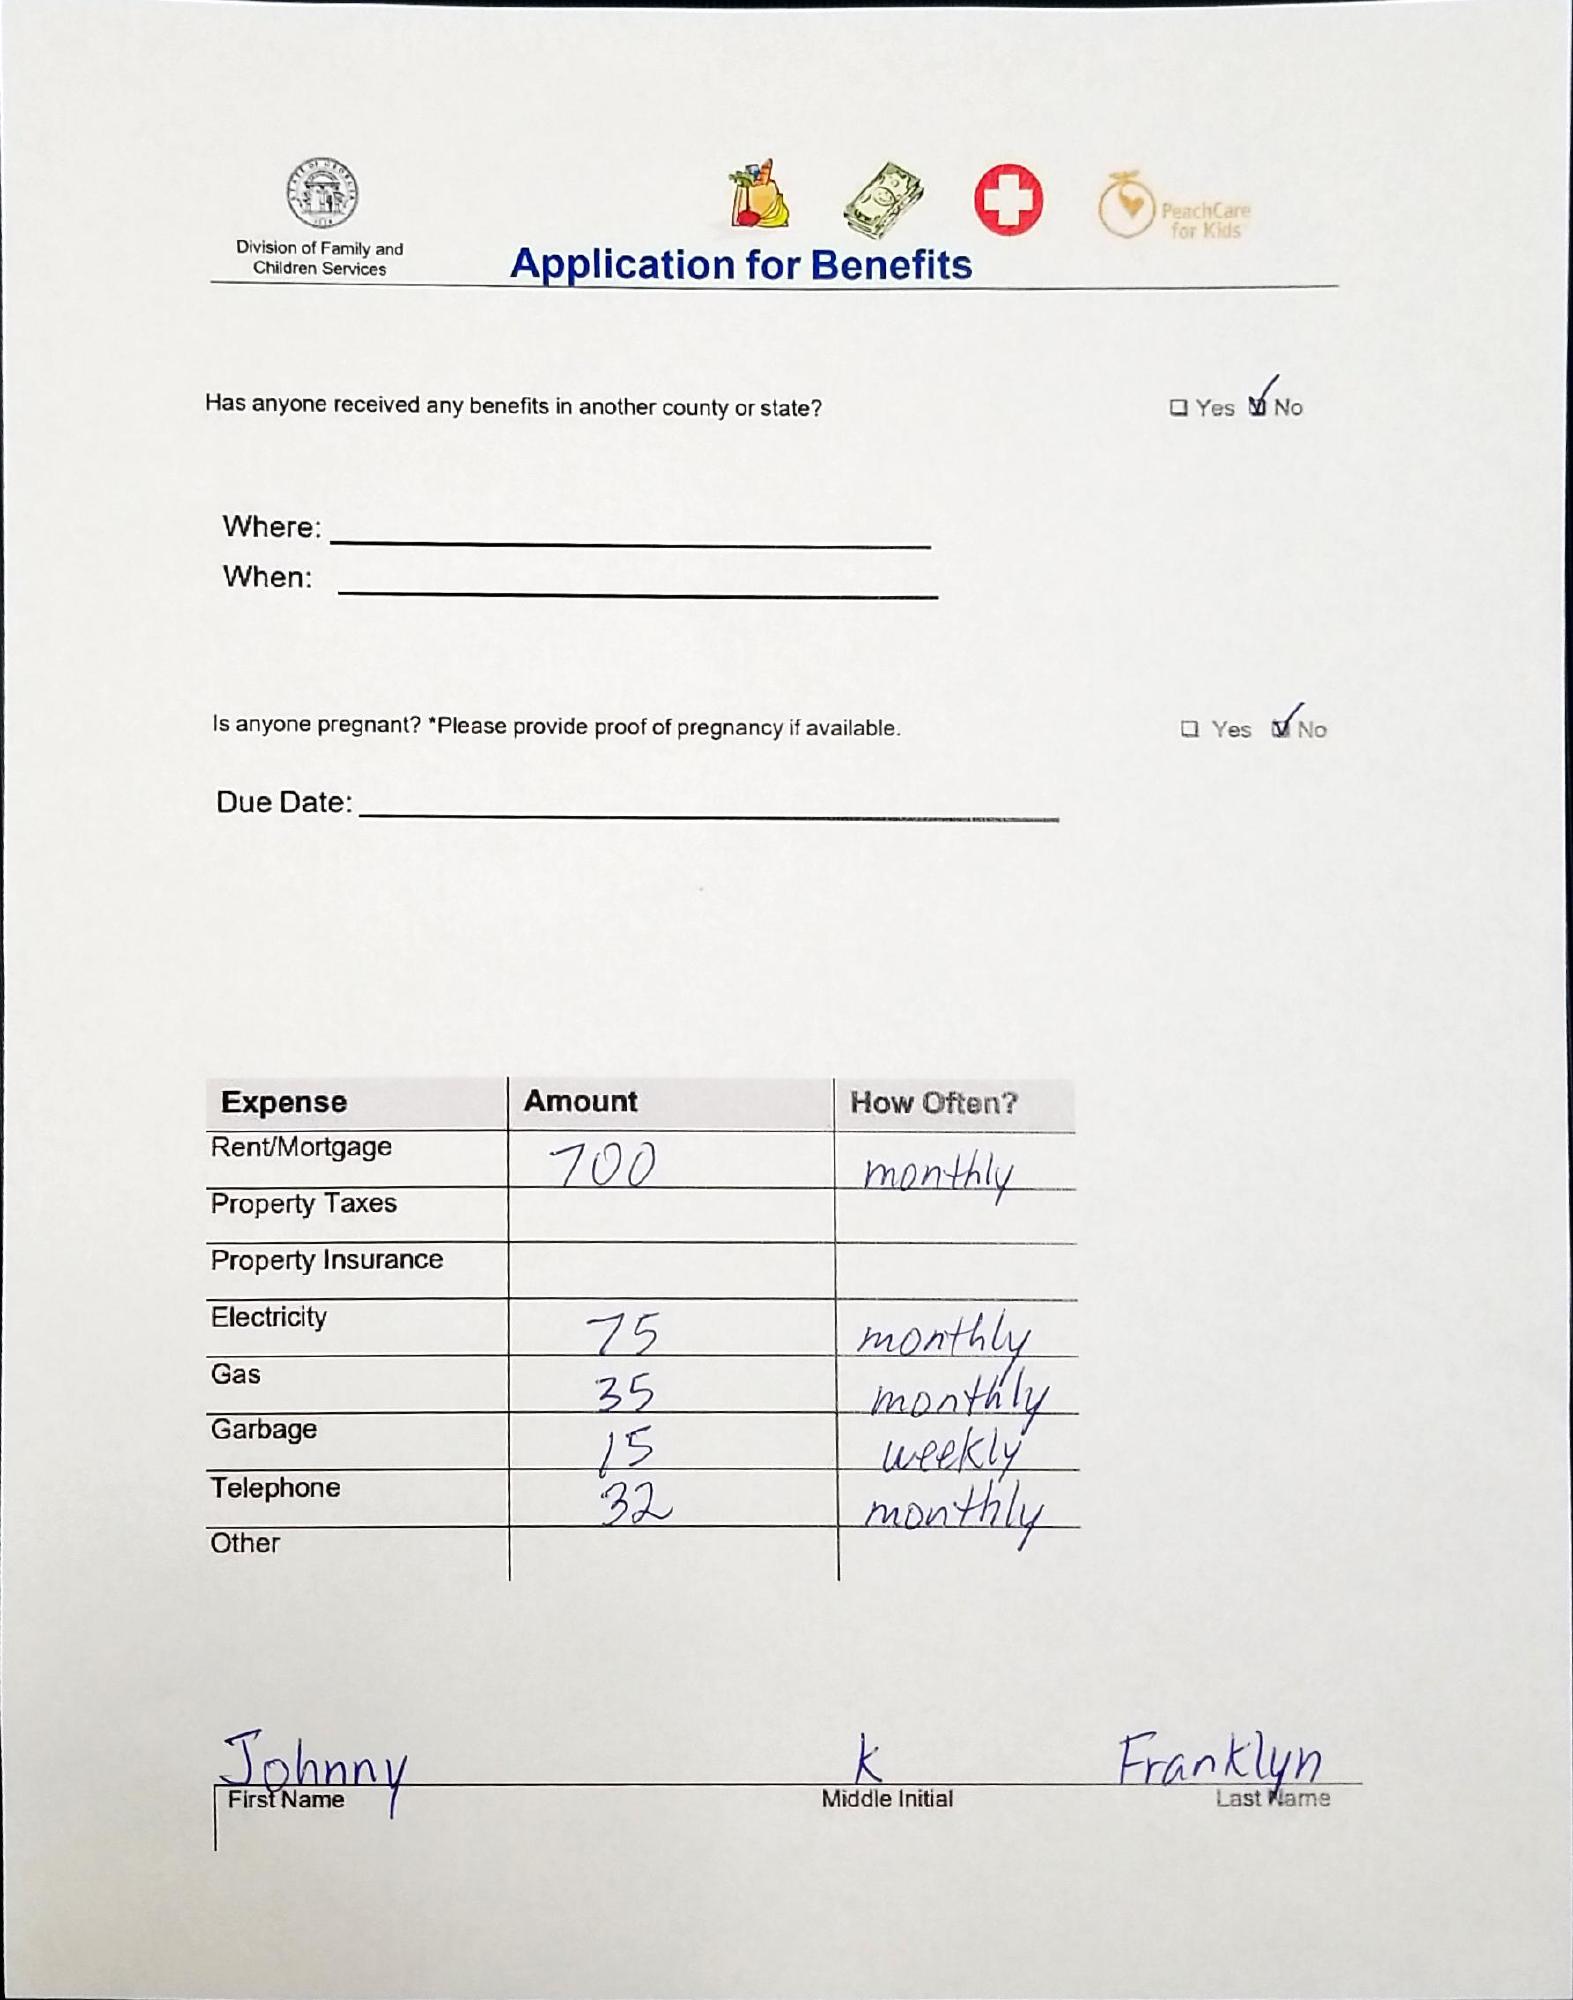 STATE OF GEORGIA
1776
Division of Family and
Children Services
Application for Benefits
PeachCare
for Kids
Has anyone received any benefits in another county or state? ☐ Yes ☑ No
Where:
When:
Is anyone pregnant? *Please provide proof of pregnancy if available. ☐ Yes ☑ No
Due Date:
Expense Amount How Often?
Rent/Mortgage 700 monthly
Property Taxes
Property Insurance
Electricity 75 monthly
Gas 35 monthly
Garbage 15 weekly
Telephone 32 monthly
Other
Johnny K Franklyn
First Name Middle Initial Last Name